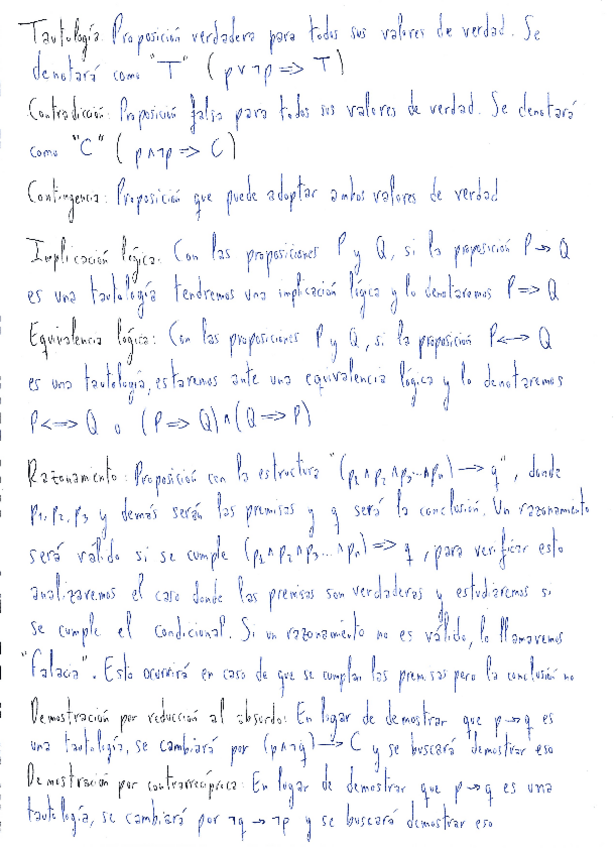 Tautología: Proposición verdadera para todos sus valores de verdad. Se
denotará como "T" ( p ∨ ¬p => T )
Contradicción: Proposición falsa para todos sus valores de verdad. Se denotará
como "C" ( p ∧ ¬p => C )
Contingencia: Proposición que puede adoptar ambos valores de verdad
Implicación lógica: Con las proposiciones P y Q, si la proposición P → Q
es una tautología tendremos una implicación lógica y lo denotaremos P => Q
Equivalencia lógica: Con las proposiciones P y Q, si la proposición P <-> Q
es una tautología, estaremos ante una equivalencia lógica y lo denotaremos
P <=> Q o (P => Q) ∧ (Q => P)
Razonamiento: Proposición con la estructura "(p₁ ∧ p₂ ∧ p₃ ... ∧ pₙ) → q", donde
p₁, p₂, p₃ y demás serán las premisas y q será la conclusión. Un razonamiento
será válido si se cumple (p₁ ∧ p₂ ∧ p₃ ... ∧ pₙ) => q, para verificar esto
analizaremos el caso donde las premisas son verdaderas y estudiaremos si
se cumple el condicional. Si un razonamiento no es válido, lo llamaremos
"falacia". Esto ocurrirá en caso de que se cumplan las premisas pero la conclusión no
Demostración por reducción al absurdo: En lugar de demostrar que p → q es
una tautología, se cambiará por (p ∧ ¬q) → C y se buscará demostrar eso
Demostración por contrarrecíproca: En lugar de demostrar que p → q es una
tautología, se cambiará por ¬q → ¬p y se buscará demostrar eso